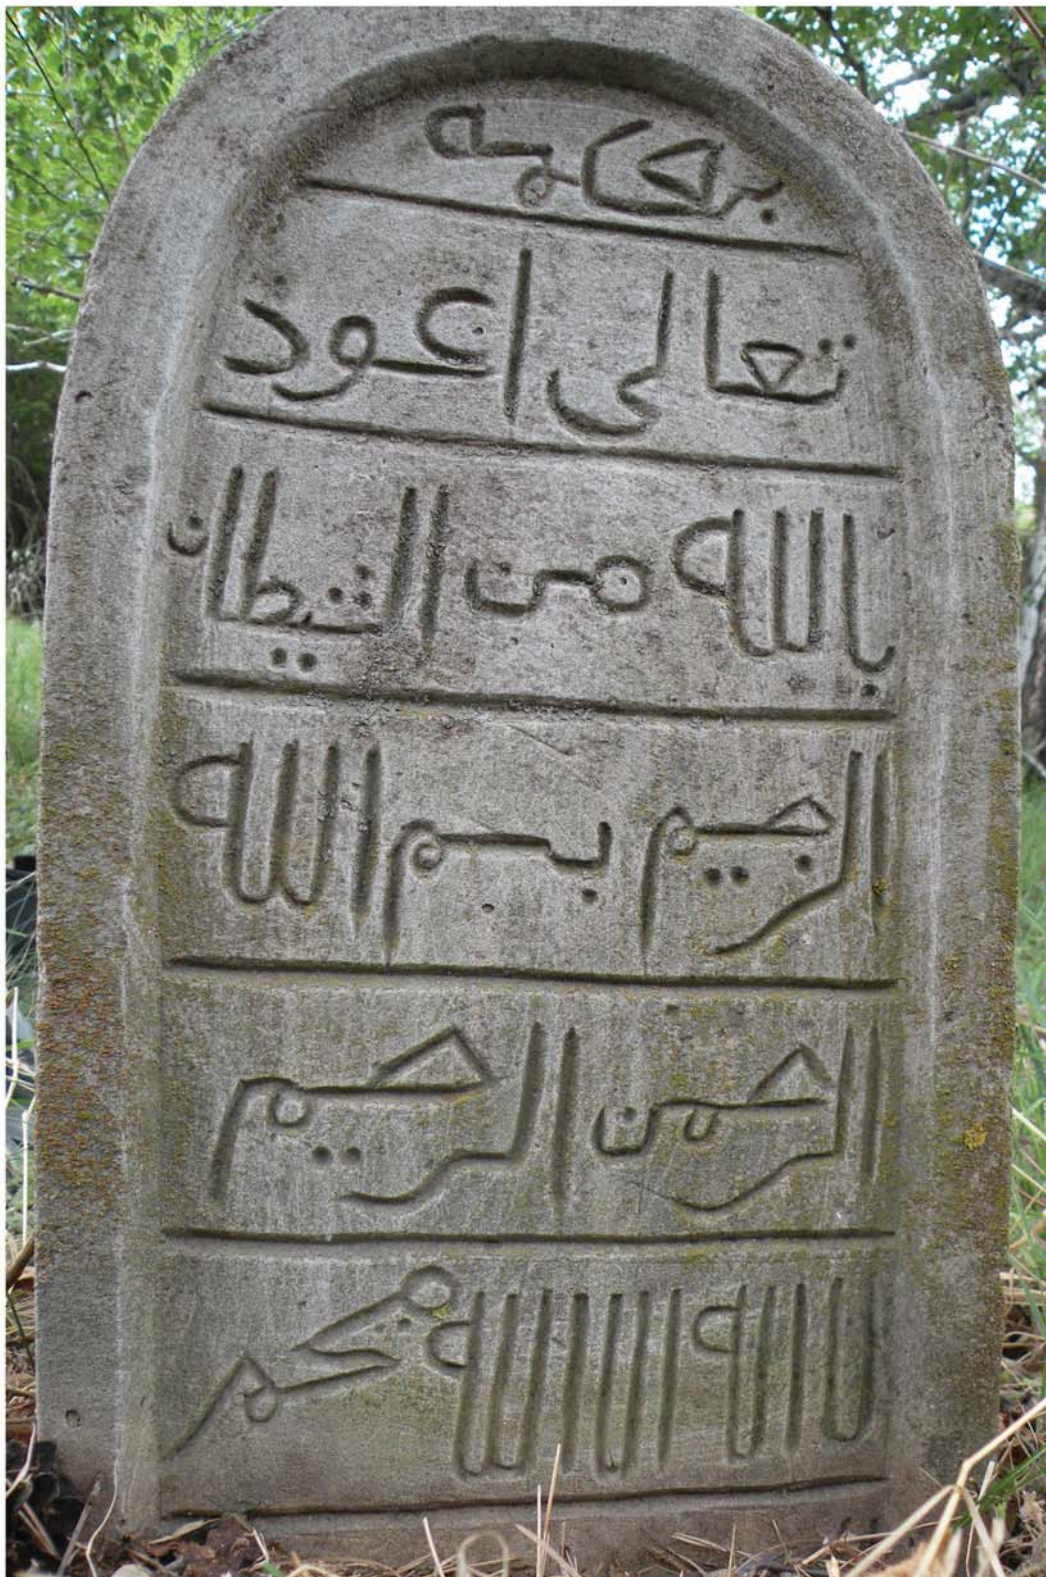 برحكمه
تعالى اعود
بالله من الشيطان
الرجيم بسم الله
الرحمن الرحيم
لا اله الا الله محم